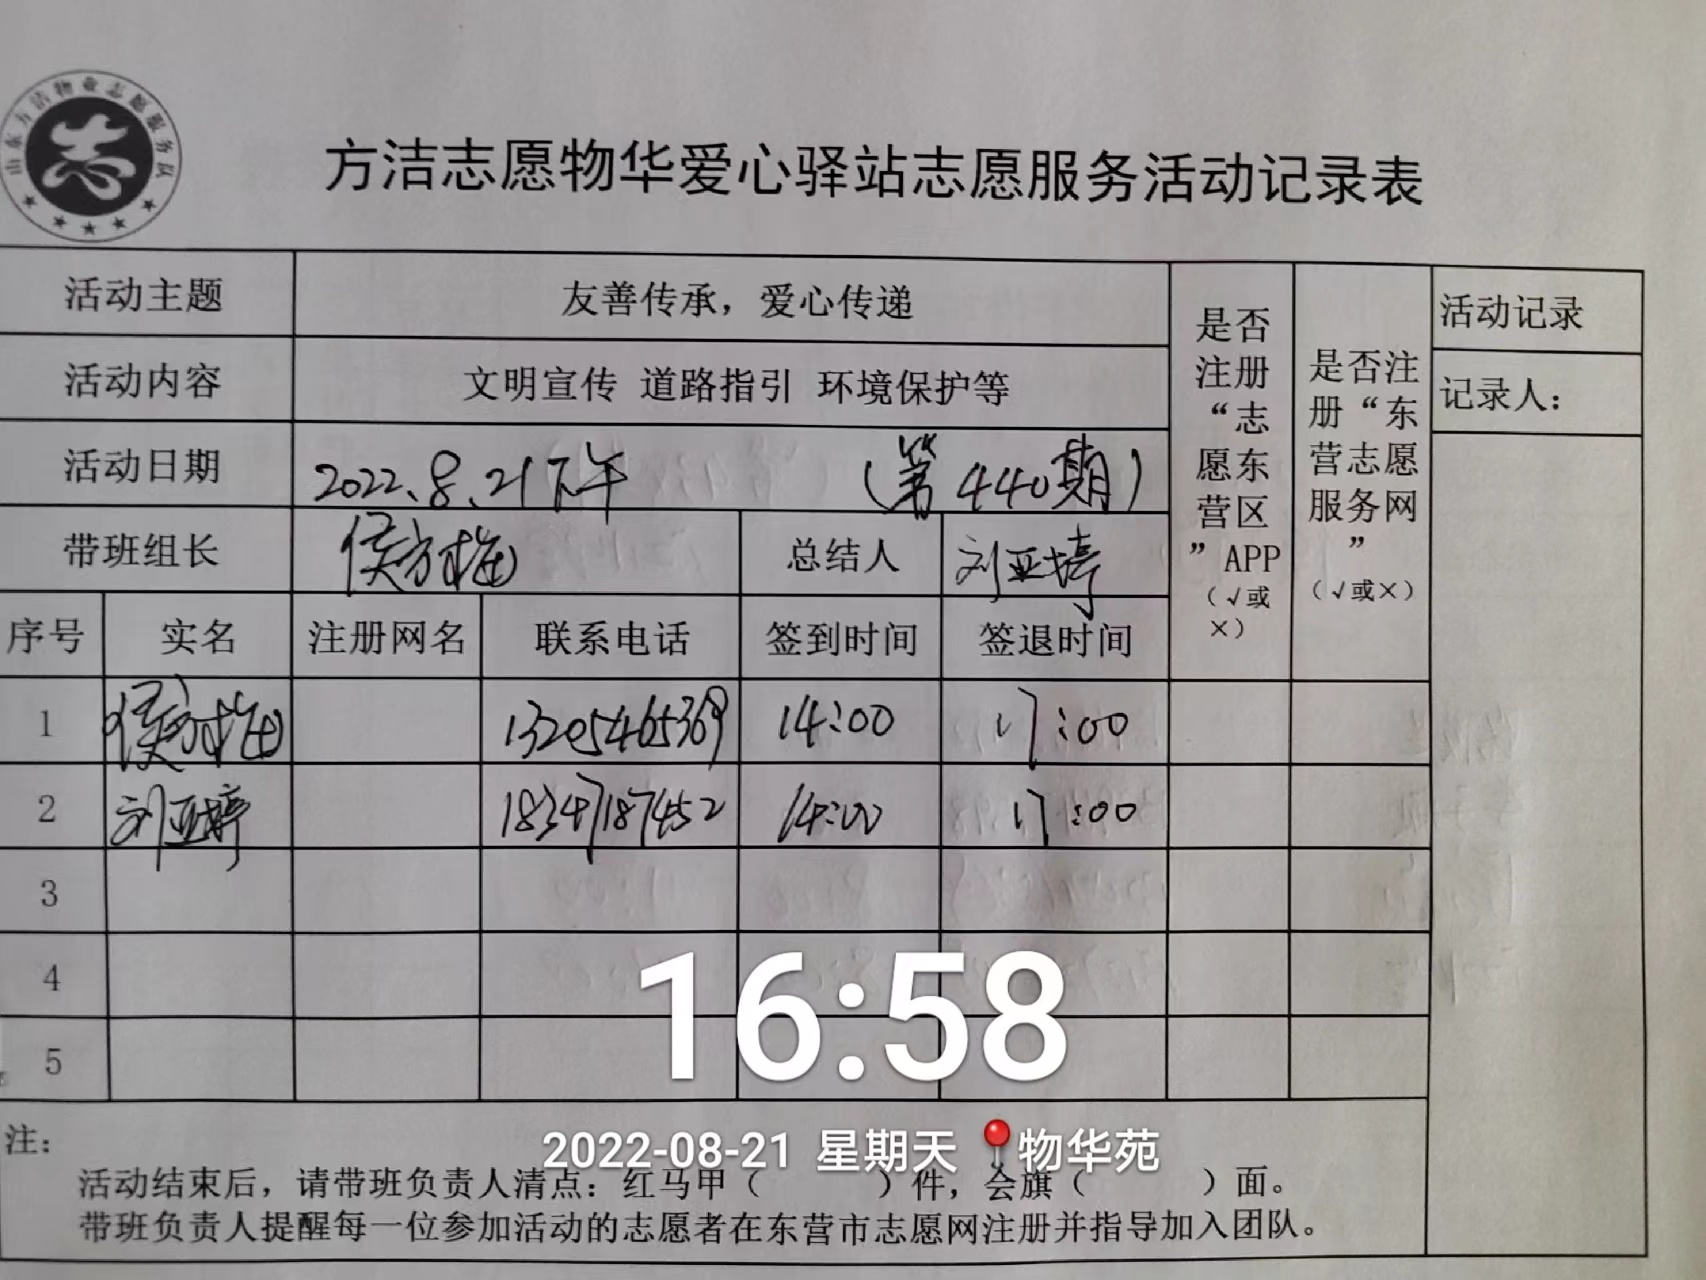 山东方洁物业志愿服务队
志
方洁志愿物华爱心驿站志愿服务活动记录表
活动主题 友善传承，爱心传递
活动内容 文明宣传 道路指引 环境保护等
活动日期 2022.8.21下午 （第440期）
带班组长 侯方梅 总结人 刘亚婷
是否注册“志愿东营区”APP（√或×）
是否注册“东营志愿服务网”（√或×）
活动记录
记录人：
序号 实名 注册网名 联系电话 签到时间 签退时间
1 侯方梅 13205465369 14:00 17:00
2 刘亚婷 18347187452 14:00 17:00
3
4
5
16:58
2022-08-21 星期天 物华苑
注：
活动结束后，请带班负责人清点：红马甲（ ）件，会旗（ ）面。
带班负责人提醒每一位参加活动的志愿者在东营市志愿网注册并指导加入团队。